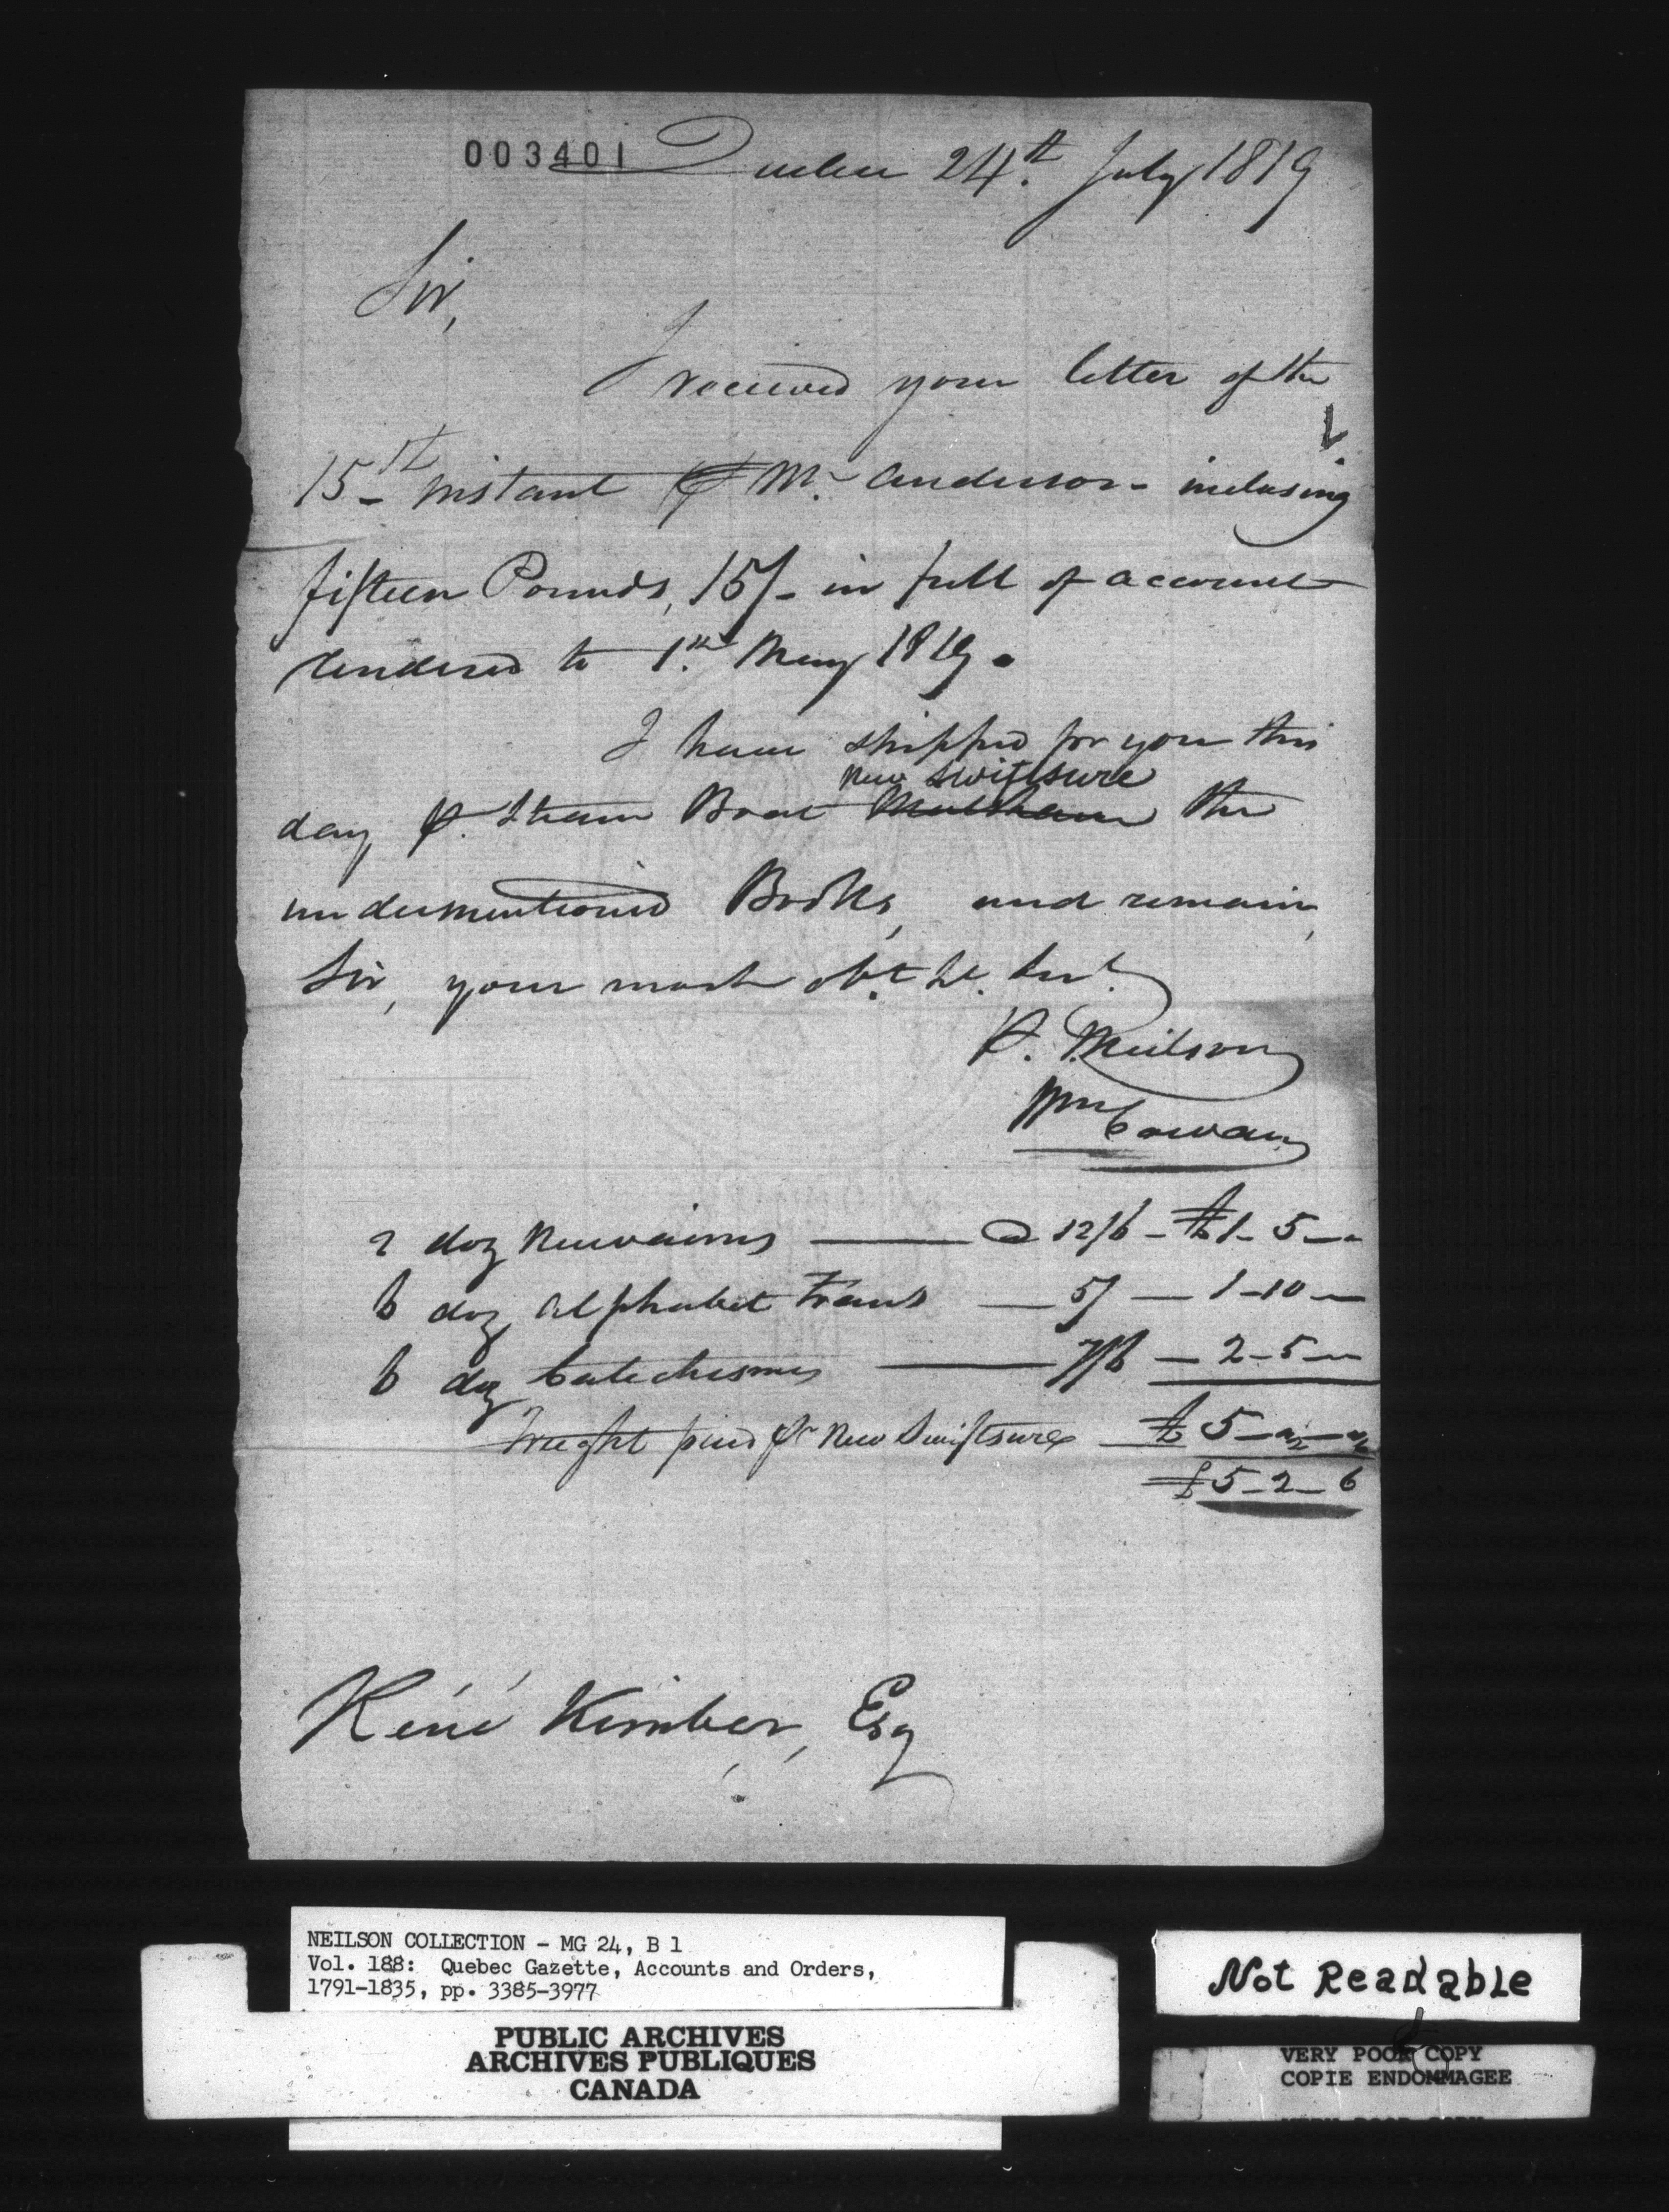 003401 Quebec 24.th July 1819
Sir,
I received your letter of the
15th instant ⅌ Mr. Anderson - inclosing
fifteen Pounds, 15/- in full of account
rendered to 1.st May 1819.
I have shipped for you this
New Swiftsure
day ⅌. Steam Boat the
undermentioned Books, and remain,
Sir, your most obt. he. Sert.
P. Neilson
Wm Cowan
2 doz Neuvaines — @ 12/6 - £1 - 5 —
6 doz Alphabet Frans — 5/ — 1 - 10 —
6 doz Catechismes — 7/6 — 2 - 5 —
Freight paid pr New Swiftsure £ 5 — —
£ 5 - 2 - 6
René Kimber, Esq
NEILSON COLLECTION - MG 24, B 1
Vol. 188: Quebec Gazette, Accounts and Orders,
1791-1835, pp. 3385-3977
PUBLIC ARCHIVES
ARCHIVES PUBLIQUES
CANADA
Not Readable
VERY POOR COPY
COPIE ENDOMMAGEE